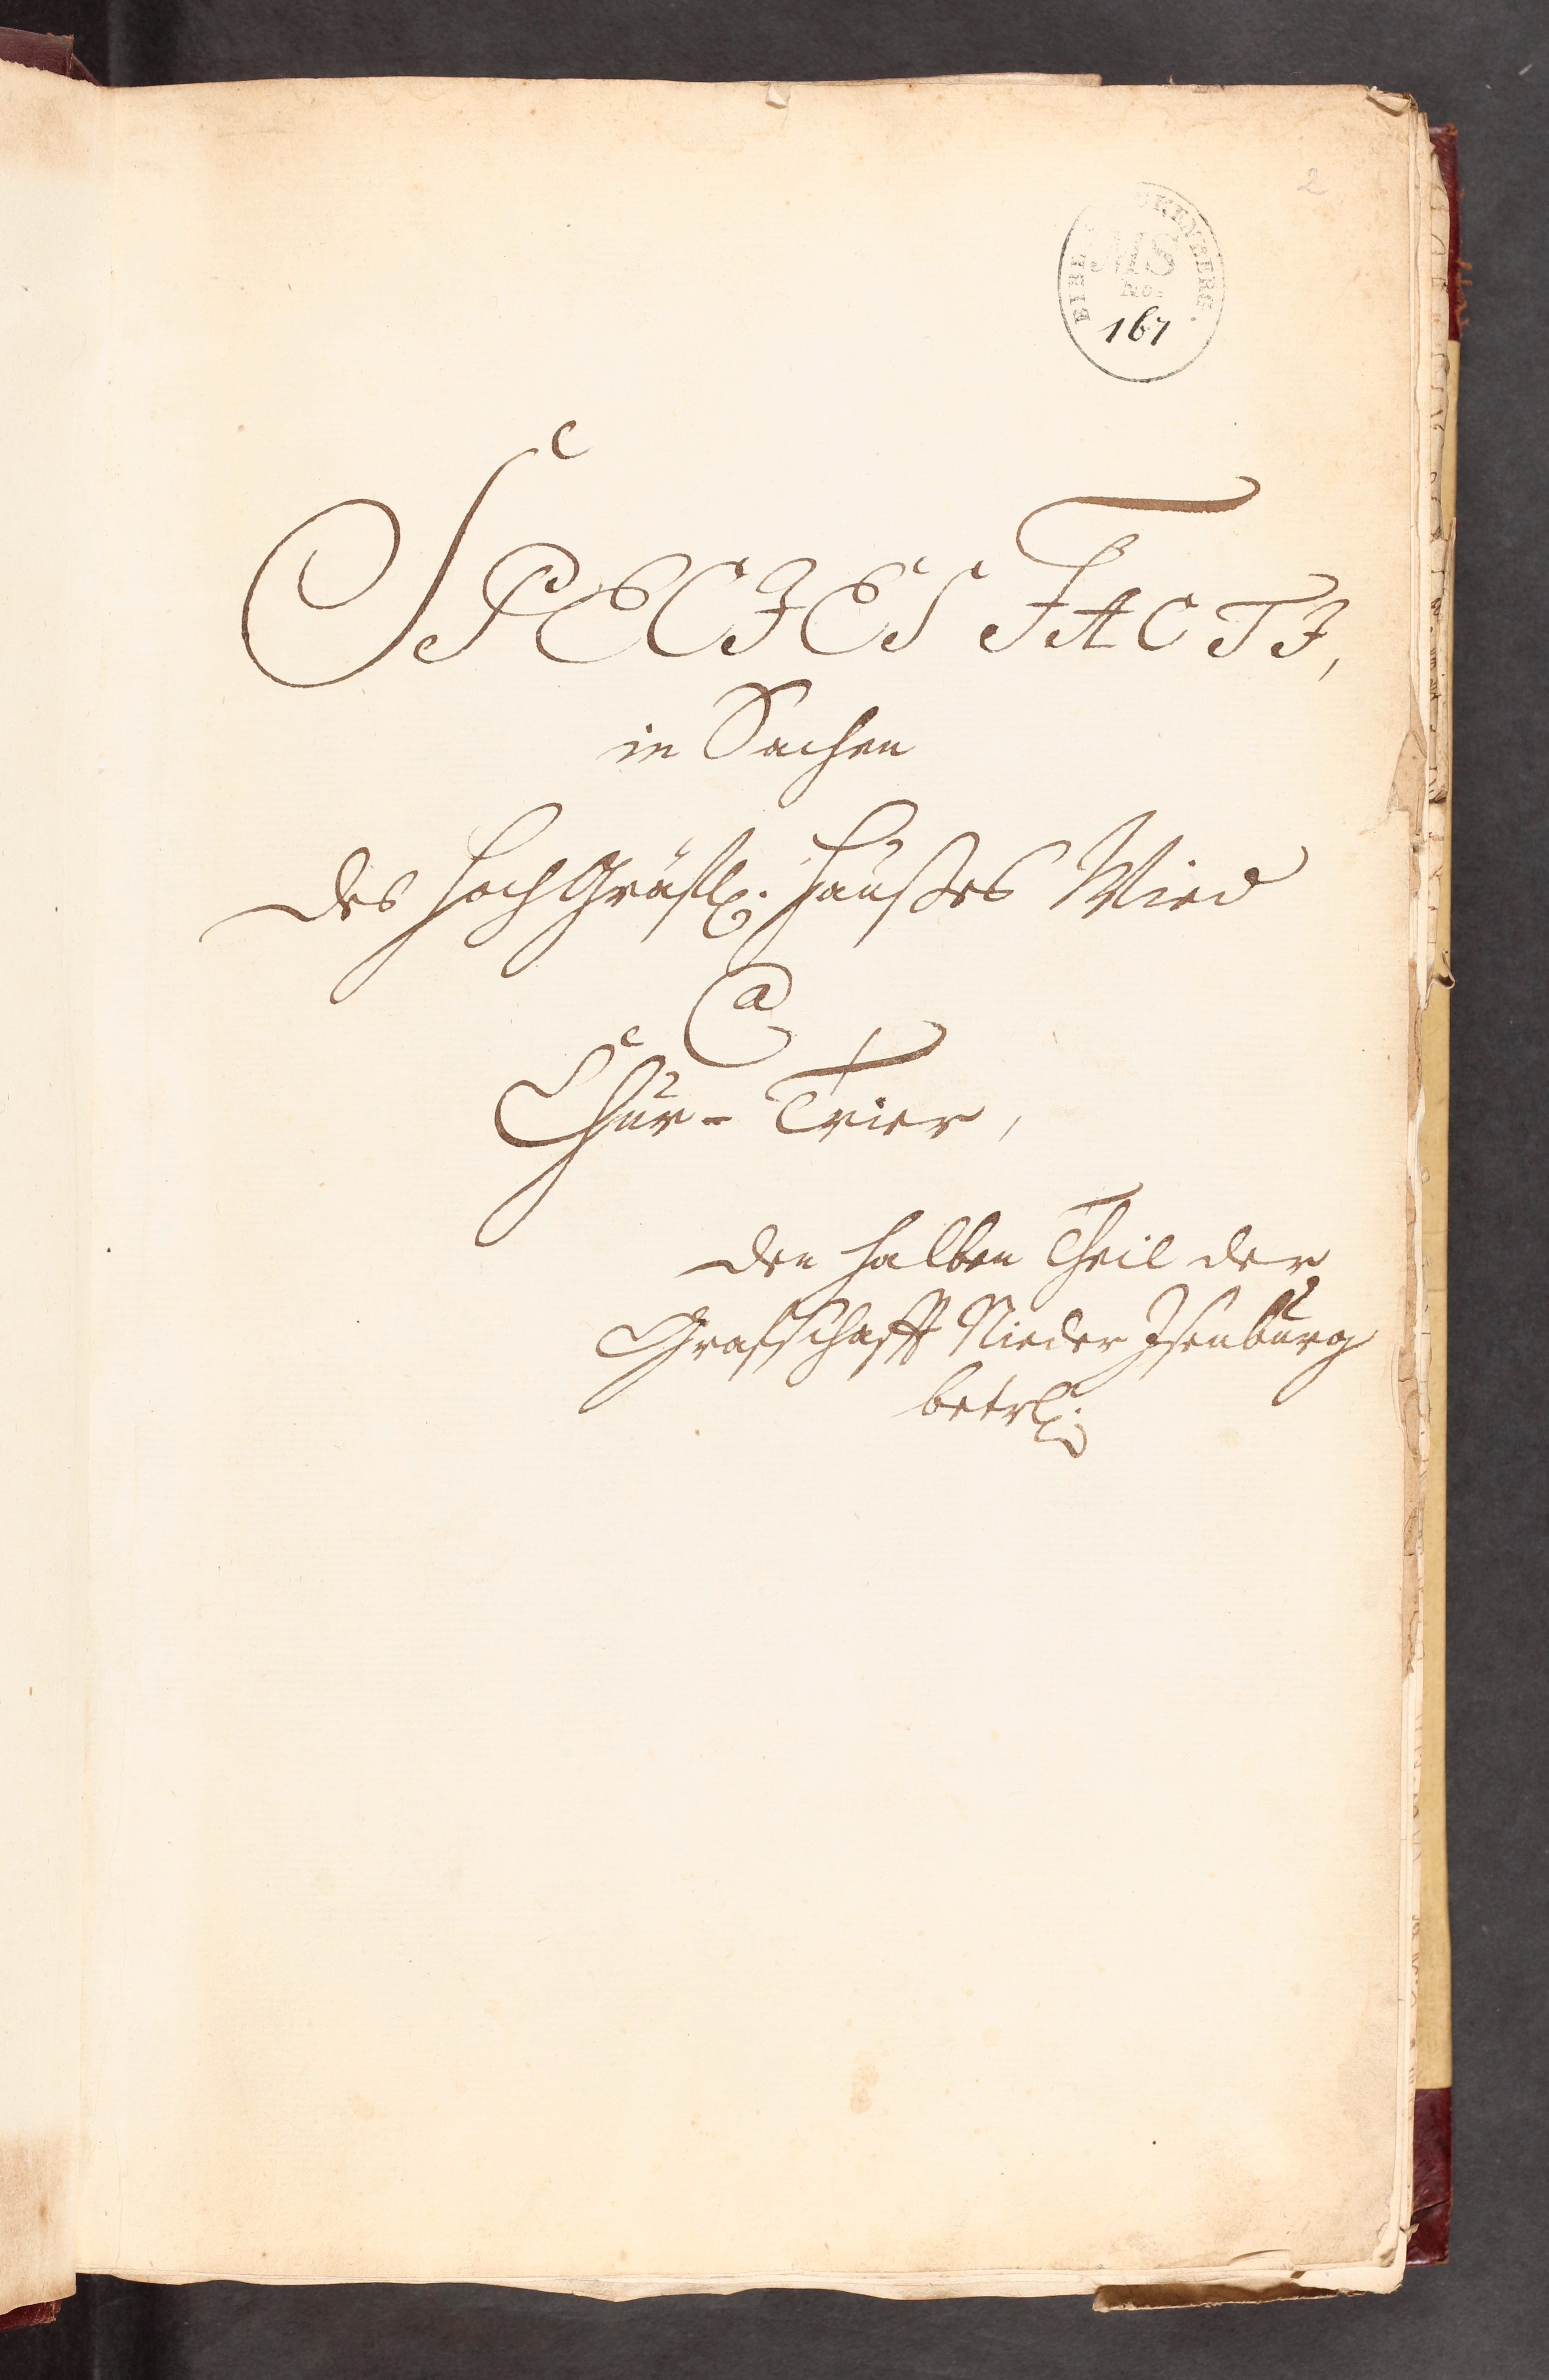 2
MS
No.
167
SPECIES FACTI,
in Sachen
des HochGräfl. Haußes Wied
Ca
Chur-Trier,
den halben Theil der
Graffschafft Nieder Isenburg
betrl.